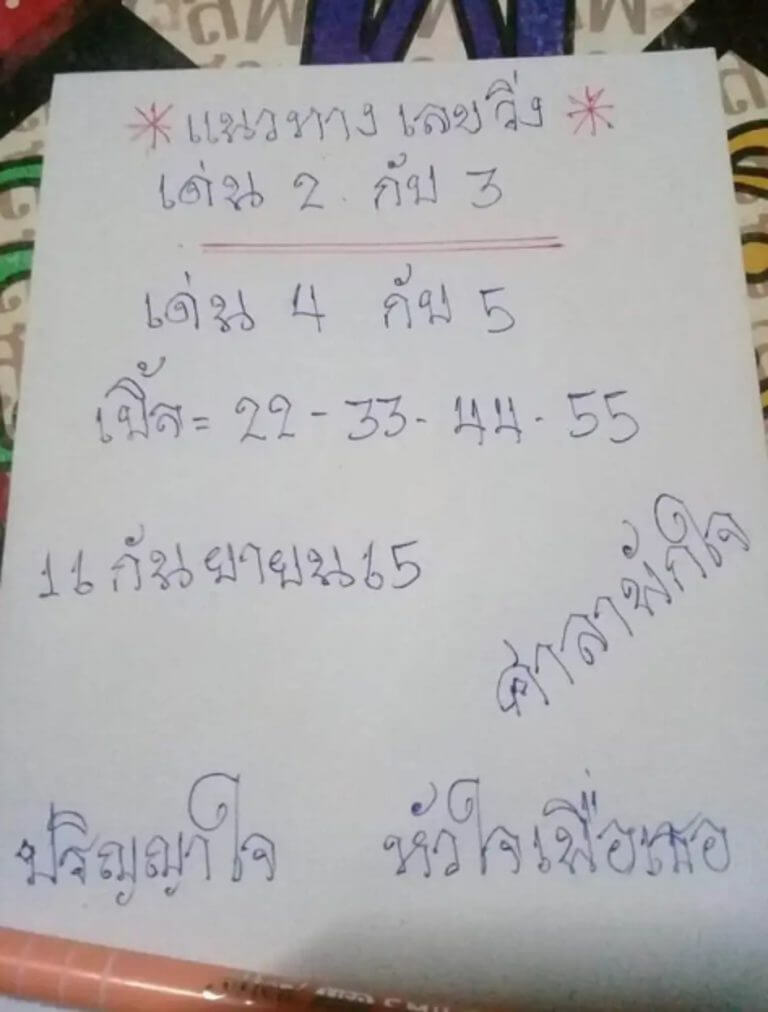 * แนวทาง เลขวิ่ง *
เด่น 2 กับ 3
เด่น 4 กับ 5
เบิ้ล = 22 - 33 - 44 - 55
16 กันยายน 65
ศาลาพักใจ
ปริญญาใจ หัวใจเพื่อเธอ